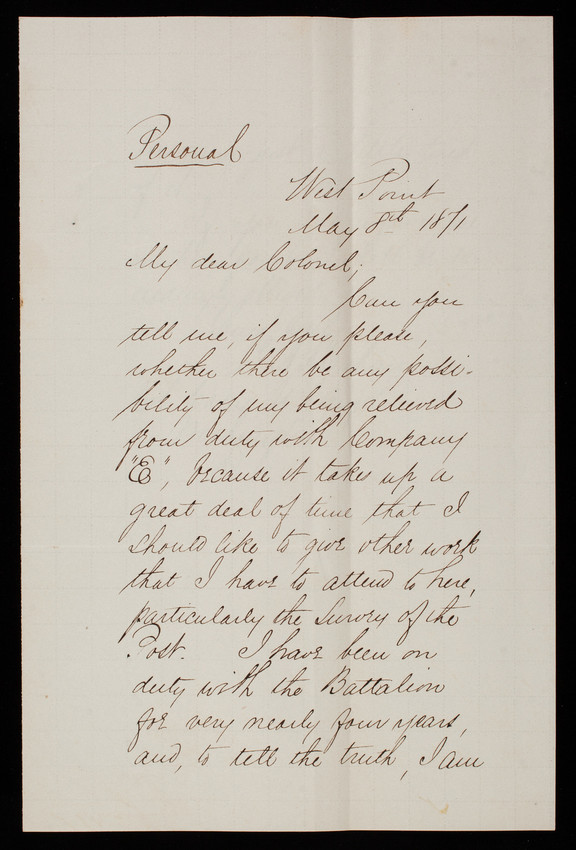 Personal
West Point
May 8th 1871
My dear Colonel;
Can you
tell me, if you please,
whether there be any possi-
bility of my being relieved
from duty with Company
"E", because it takes up a
great deal of time that I
should like to give other work
that I have to attend to here,
particularly the Survey of the
Post. I have been on
duty with the Battalion
for very nearly four years,
and, to tell the truth, I am